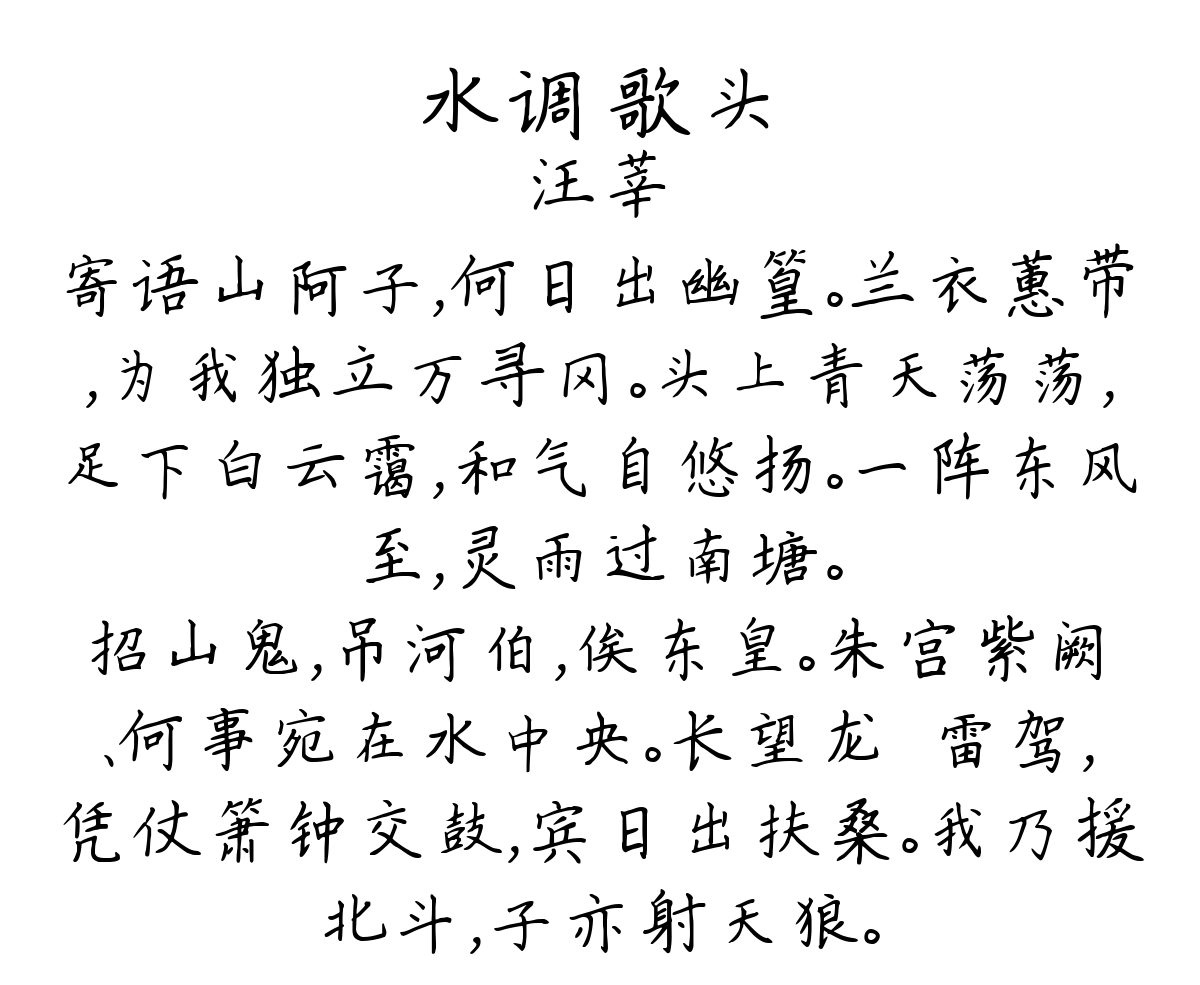 水调歌头
汪莘
寄语山阿子,何日出幽篁。兰衣蕙带
,为我独立万寻冈。头上青天荡荡,
足下白云霭,和气自悠扬。一阵东风
至,灵雨过南塘。
招山鬼,吊河伯,俟东皇。朱宫紫阙
、何事宛在水中央。长望龙 雷驾,
凭仗箫钟交鼓,宾日出扶桑。我乃援
北斗,子亦射天狼。